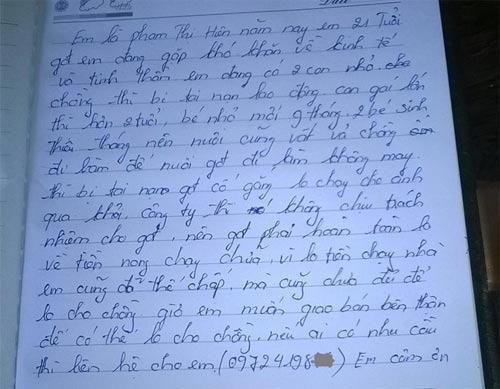 Em là phạm Thị Hiên năm nay em 21 Tuổi
gđ em đang gặp khó khăn về kinh tế
và tinh thần em đang có 2 con nhỏ.
chồng thì bị tai nạn lao động. con gái lớn
thì hơn 2 tuổi, bé nhỏ mới 9 tháng, 2 bé sinh
thiếu tháng nên nuôi cũng vất vả chồng
đi làm để nuôi gđ để làm không may.
thì bị tai nạn gđ cố gắng lo chạy cho anh
qua khỏi. công ty thì không chịu trách
nhiệm cho gđ, nên gđ phải hoàn toàn lo
về tiền nong chạy chữa, vì lo tiền chạy nhà
em cũng đã thế chấp. mà cũng chưa đủ để
lo cho chồng giờ em muốn giao bán bản thân
để có thể lo cho chồng, nếu ai có nhu cầu
thì liên hệ cho em, (09724198) Em cảm ơn